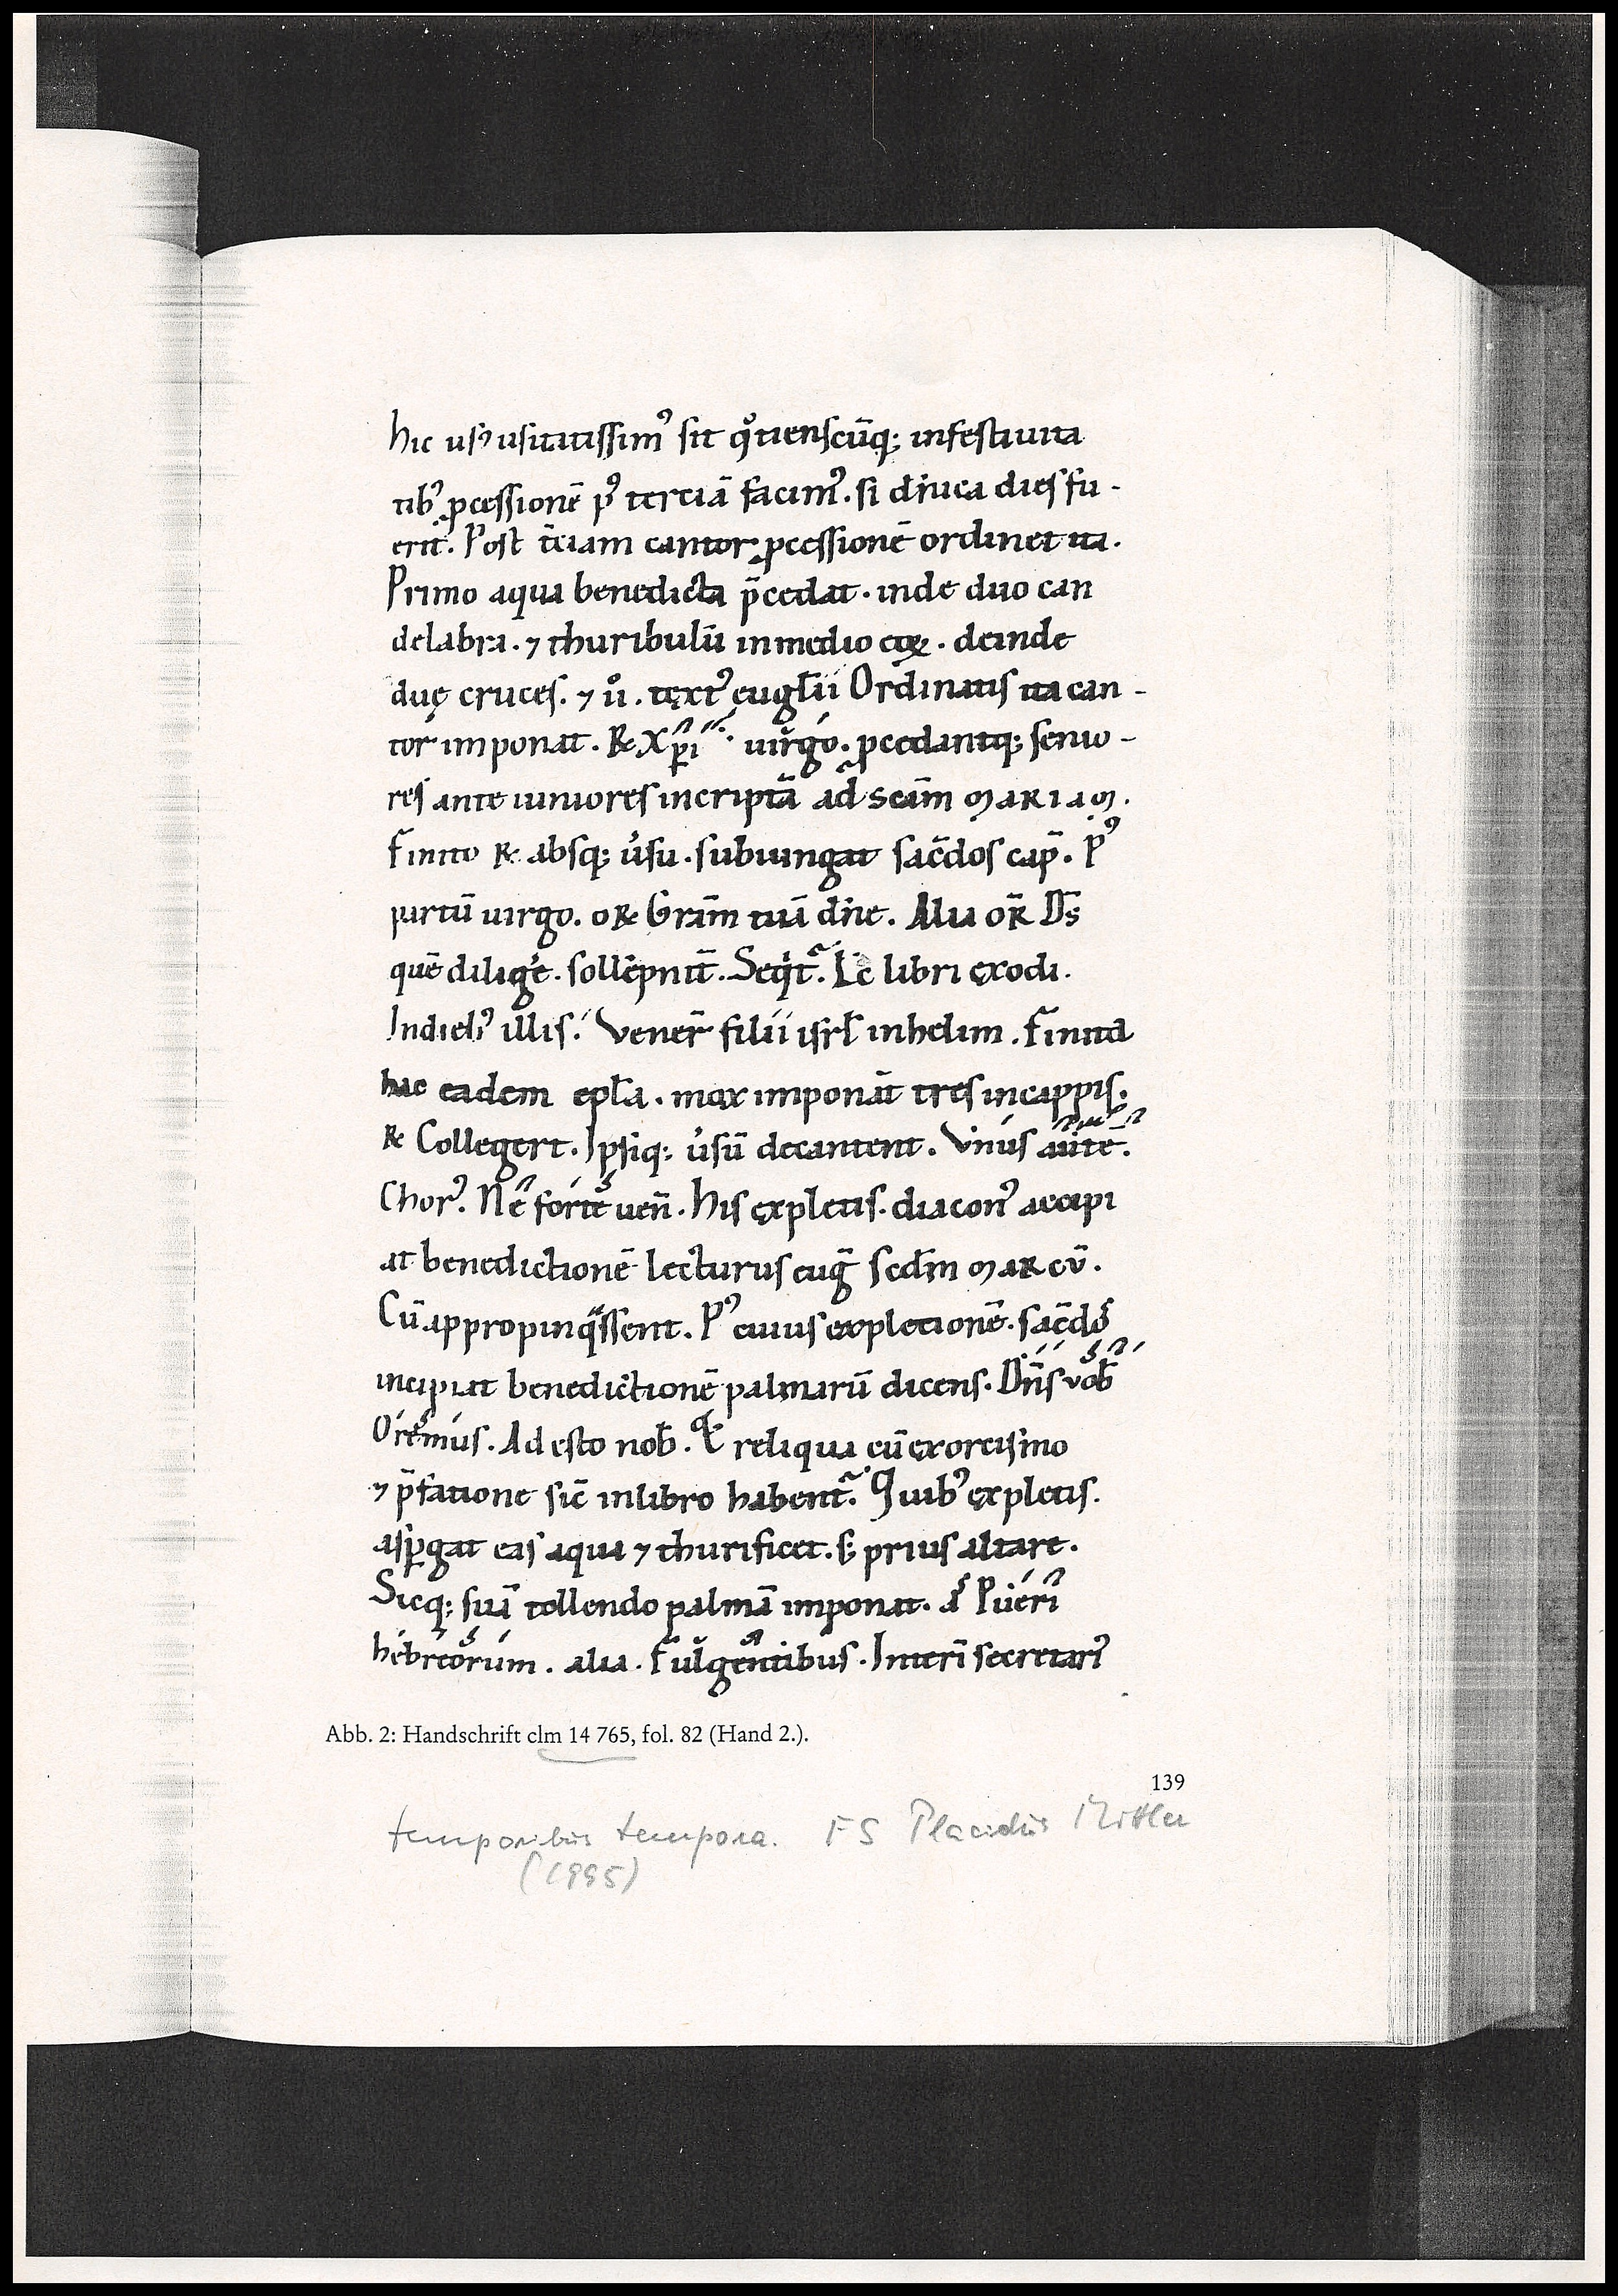 hic usꝰ usitatissimꝰ sit qͦtienscūq; infestiuita
tibꝰ ꝓcessionē pꝰ terciā facimꝰ. si diuca dies fu -
erit. Post t̄ciam cantor ꝓcessionē ordinet ita.
Primo aqua benedicta p̄cedat. inde duo can
delabra. ⁊ thuribulū inmedio eoꝝ. deinde
duę cruces. ⁊ uͦ. textꝰ eugl̄ii Ordinatis ita can -
tor imponat. ℞ Xp̄i uirgo. p̄cedantq; senio -
res ante iuniores incriptā ad sc̄am MARIAM.
Finito ℞ absq; u̓su. subiungat sac̄dos cap̄. Pꝰ
partū uirgo. oR̄ Gr̄am tuā dn̄e. Alia oR̄ D̄s
quē dilig̓e. sollēpnit̄. Seqͥt᷑. Lc̄ libri exodi.
Indiebꝰ illis. Vener̄ filii isrl̄ inhelim. Finita
hac eadem epl̄a. mox imponāt tres incappis.
℞ Collegert. Ipsiq; u̓sū decantent. Vnus aūte.
Chorꝰ. Ne forte ueñ. His expletis. diaconꝰ accipi
at benedictionē lecturus euḡ sedm̄ MARCV̄.
Cū appropinqͣssent. Pꝰ cuius expletionē. sac̄dos
incipiat benedictionē palmarū dicens. Dn̄s vob̄
Oremus. Adesto nob̄. Et reliqua cū exorcismo
⁊ p̄fatione sic̄ inlibro habent᷑. Quibꝰ expletis.
asꝑgat eas aqua ⁊ thurificet. s; prius altare.
Sicq; suā tollendo palmā imponat. a͂ Pueri
hebreorum. alia. Fulgentibus. Interī secretariꝰ
Abb. 2: Handschrift clm 14 765, fol. 82 (Hand 2.).
139
temporibus tempora. FS Placidus Mittler
(1995)